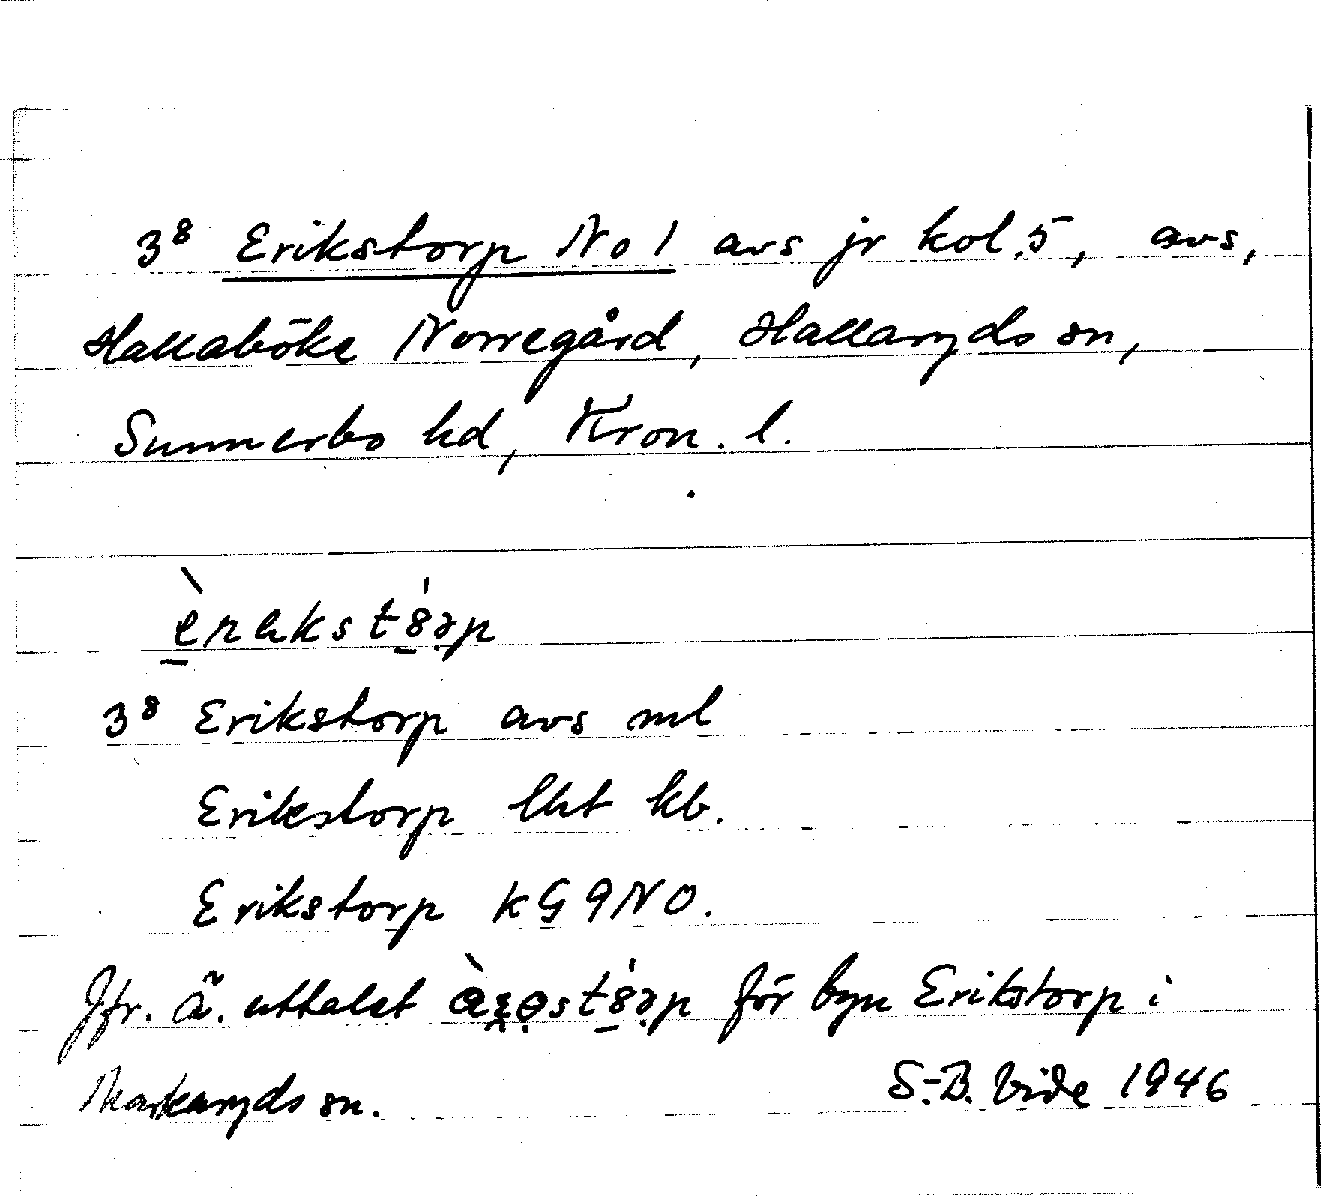 3⁸ Erikstorp No 1 avs jr kol. 5, avs,
Hallaböke Norregård, Hallaryds sn,
Sunnerbo hd, Kron. l.
3⁸ Erikstorp avs ml
Erikstorp lht kb.
Erikstorp kG9NO.
Jfr. ä. uttalet för byn Erikstorp i
Markaryds sn. S.-B. Vide 1946